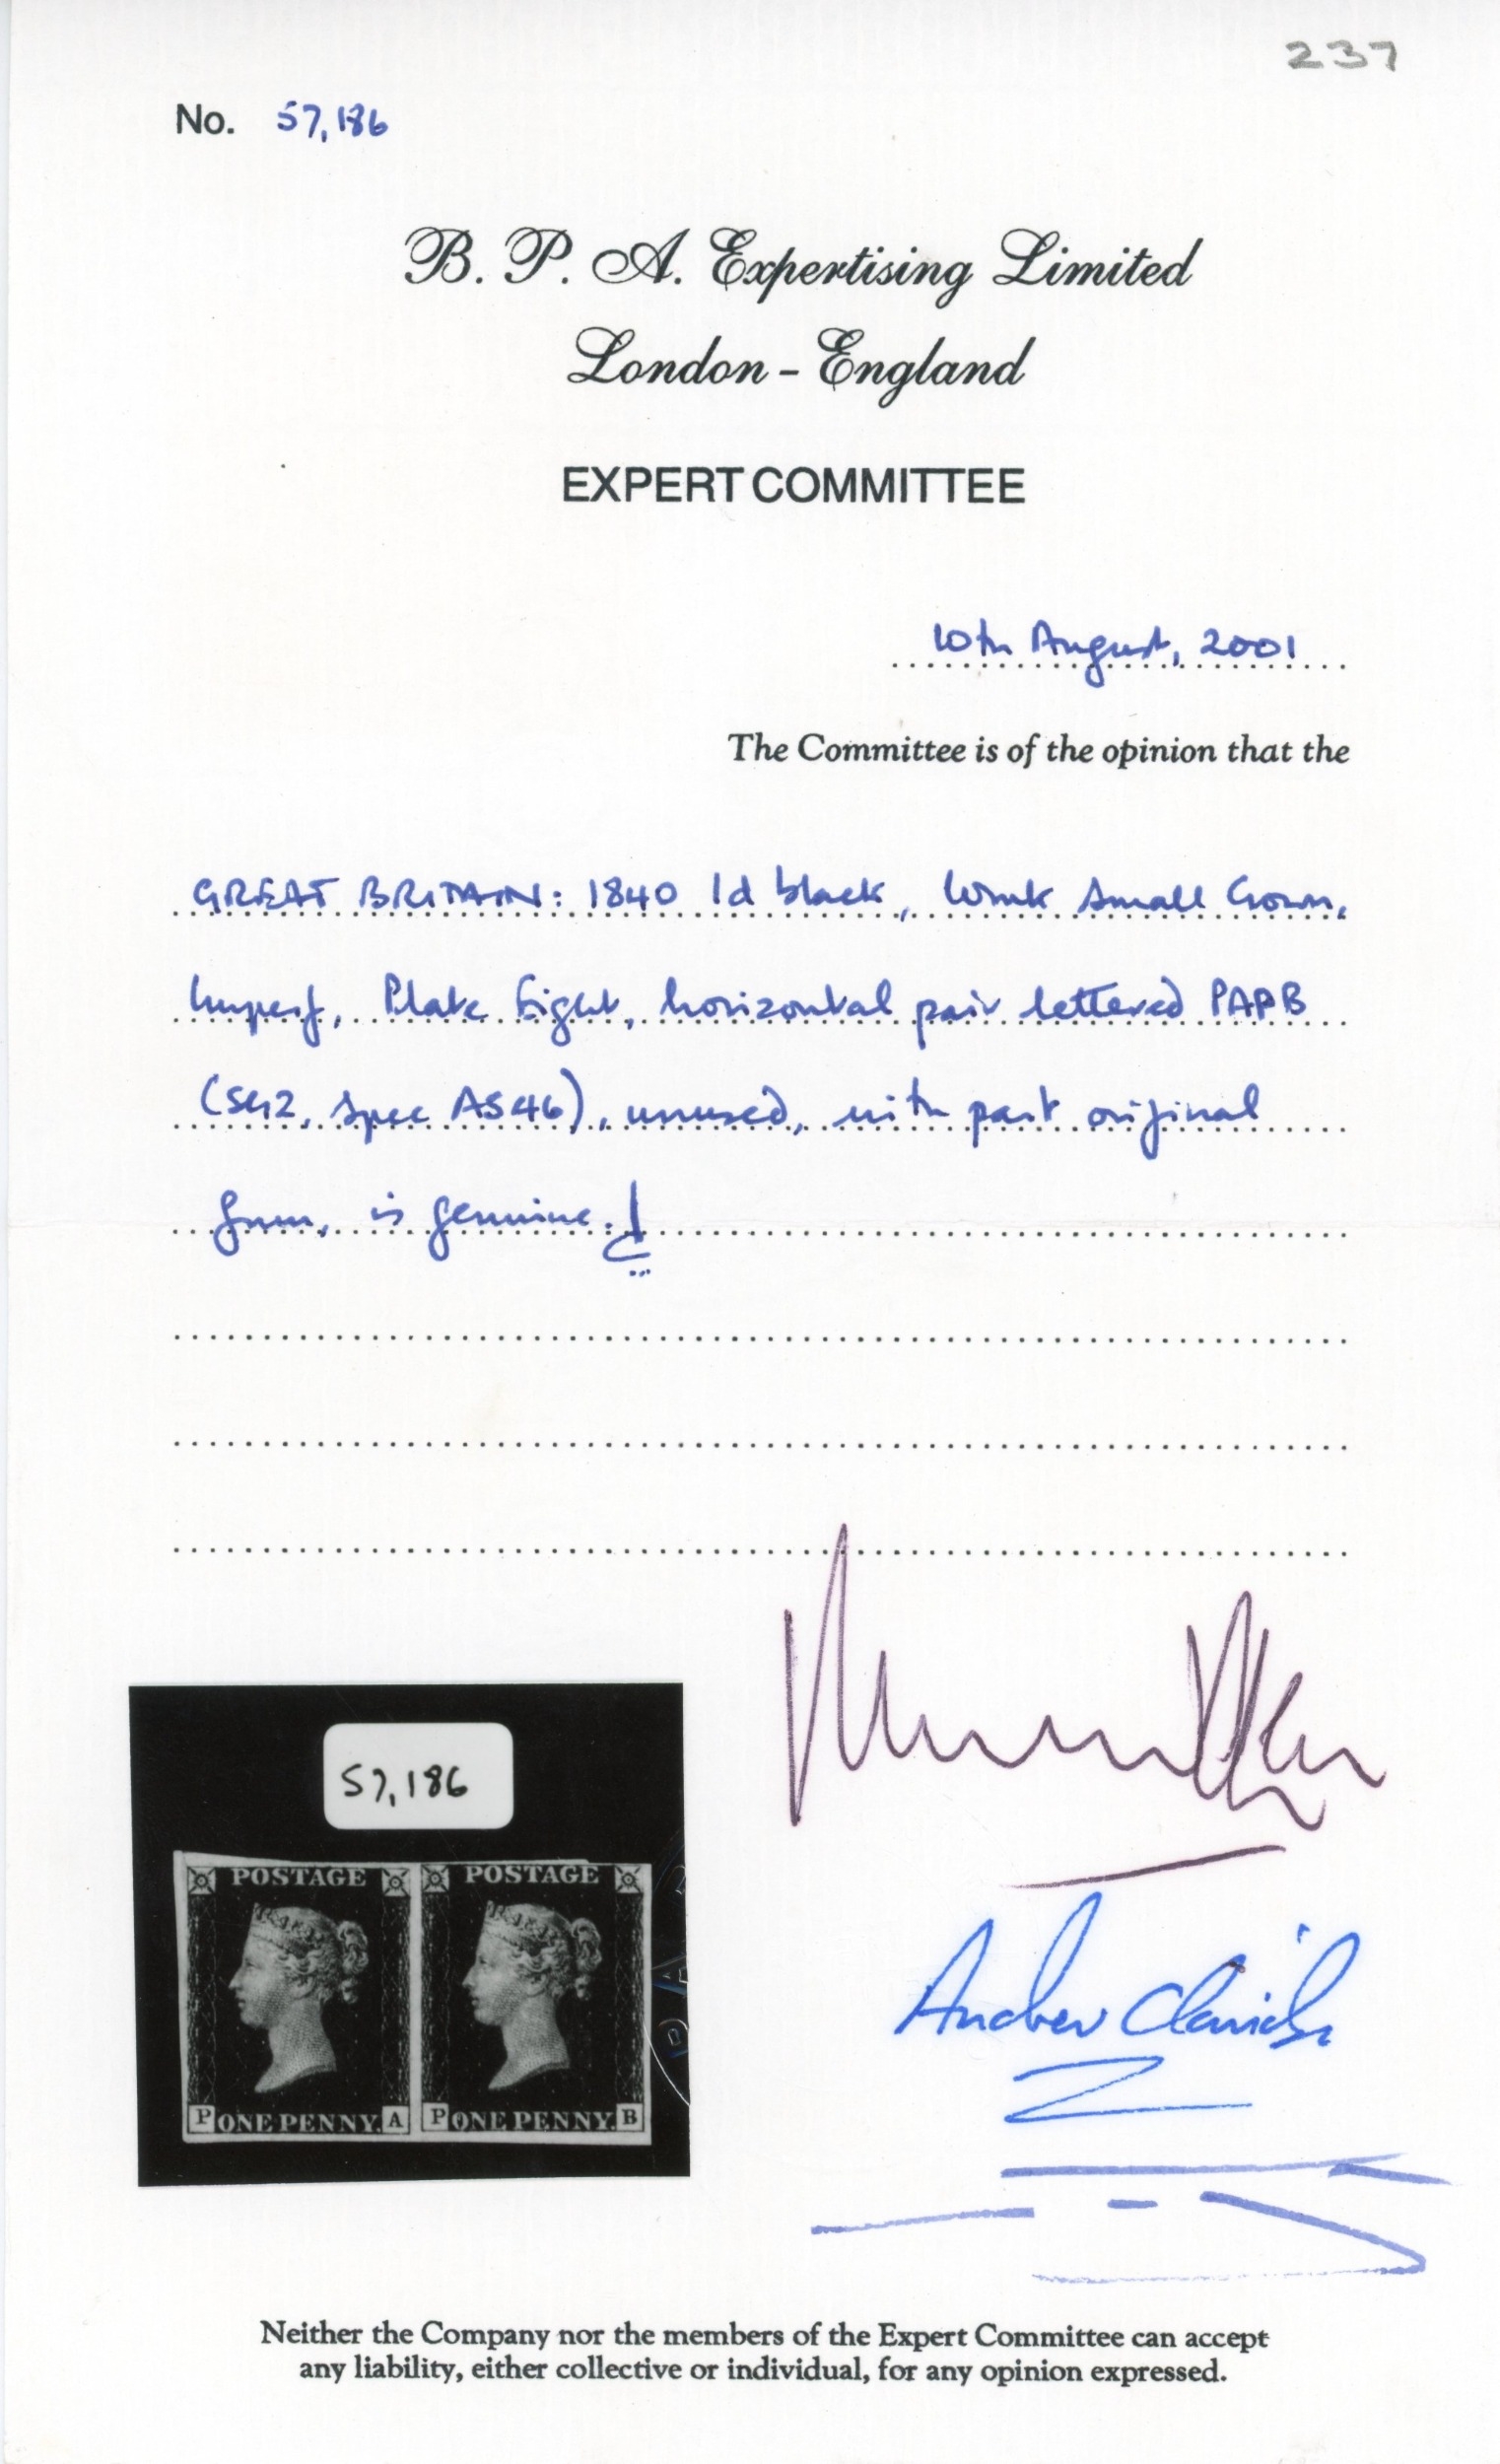 237
No. 57,186
B. P. A. Expertising Limited
London - England
EXPERT COMMITTEE
10th August, 2001
The Committee is of the opinion that the
GREAT BRITAIN: 1840 1d black, Wmk Small Crown,
Imperf, Plate Eight, horizontal pair lettered PAPB
(SG2, Spec AS46), unused, with part original
gum, is genuine.
57,186
POSTAGE POSTAGE
P ONE PENNY. A P ONE PENNY. B
Andrew
Neither the Company nor the members of the Expert Committee can accept
any liability, either collective or individual, for any opinion expressed.